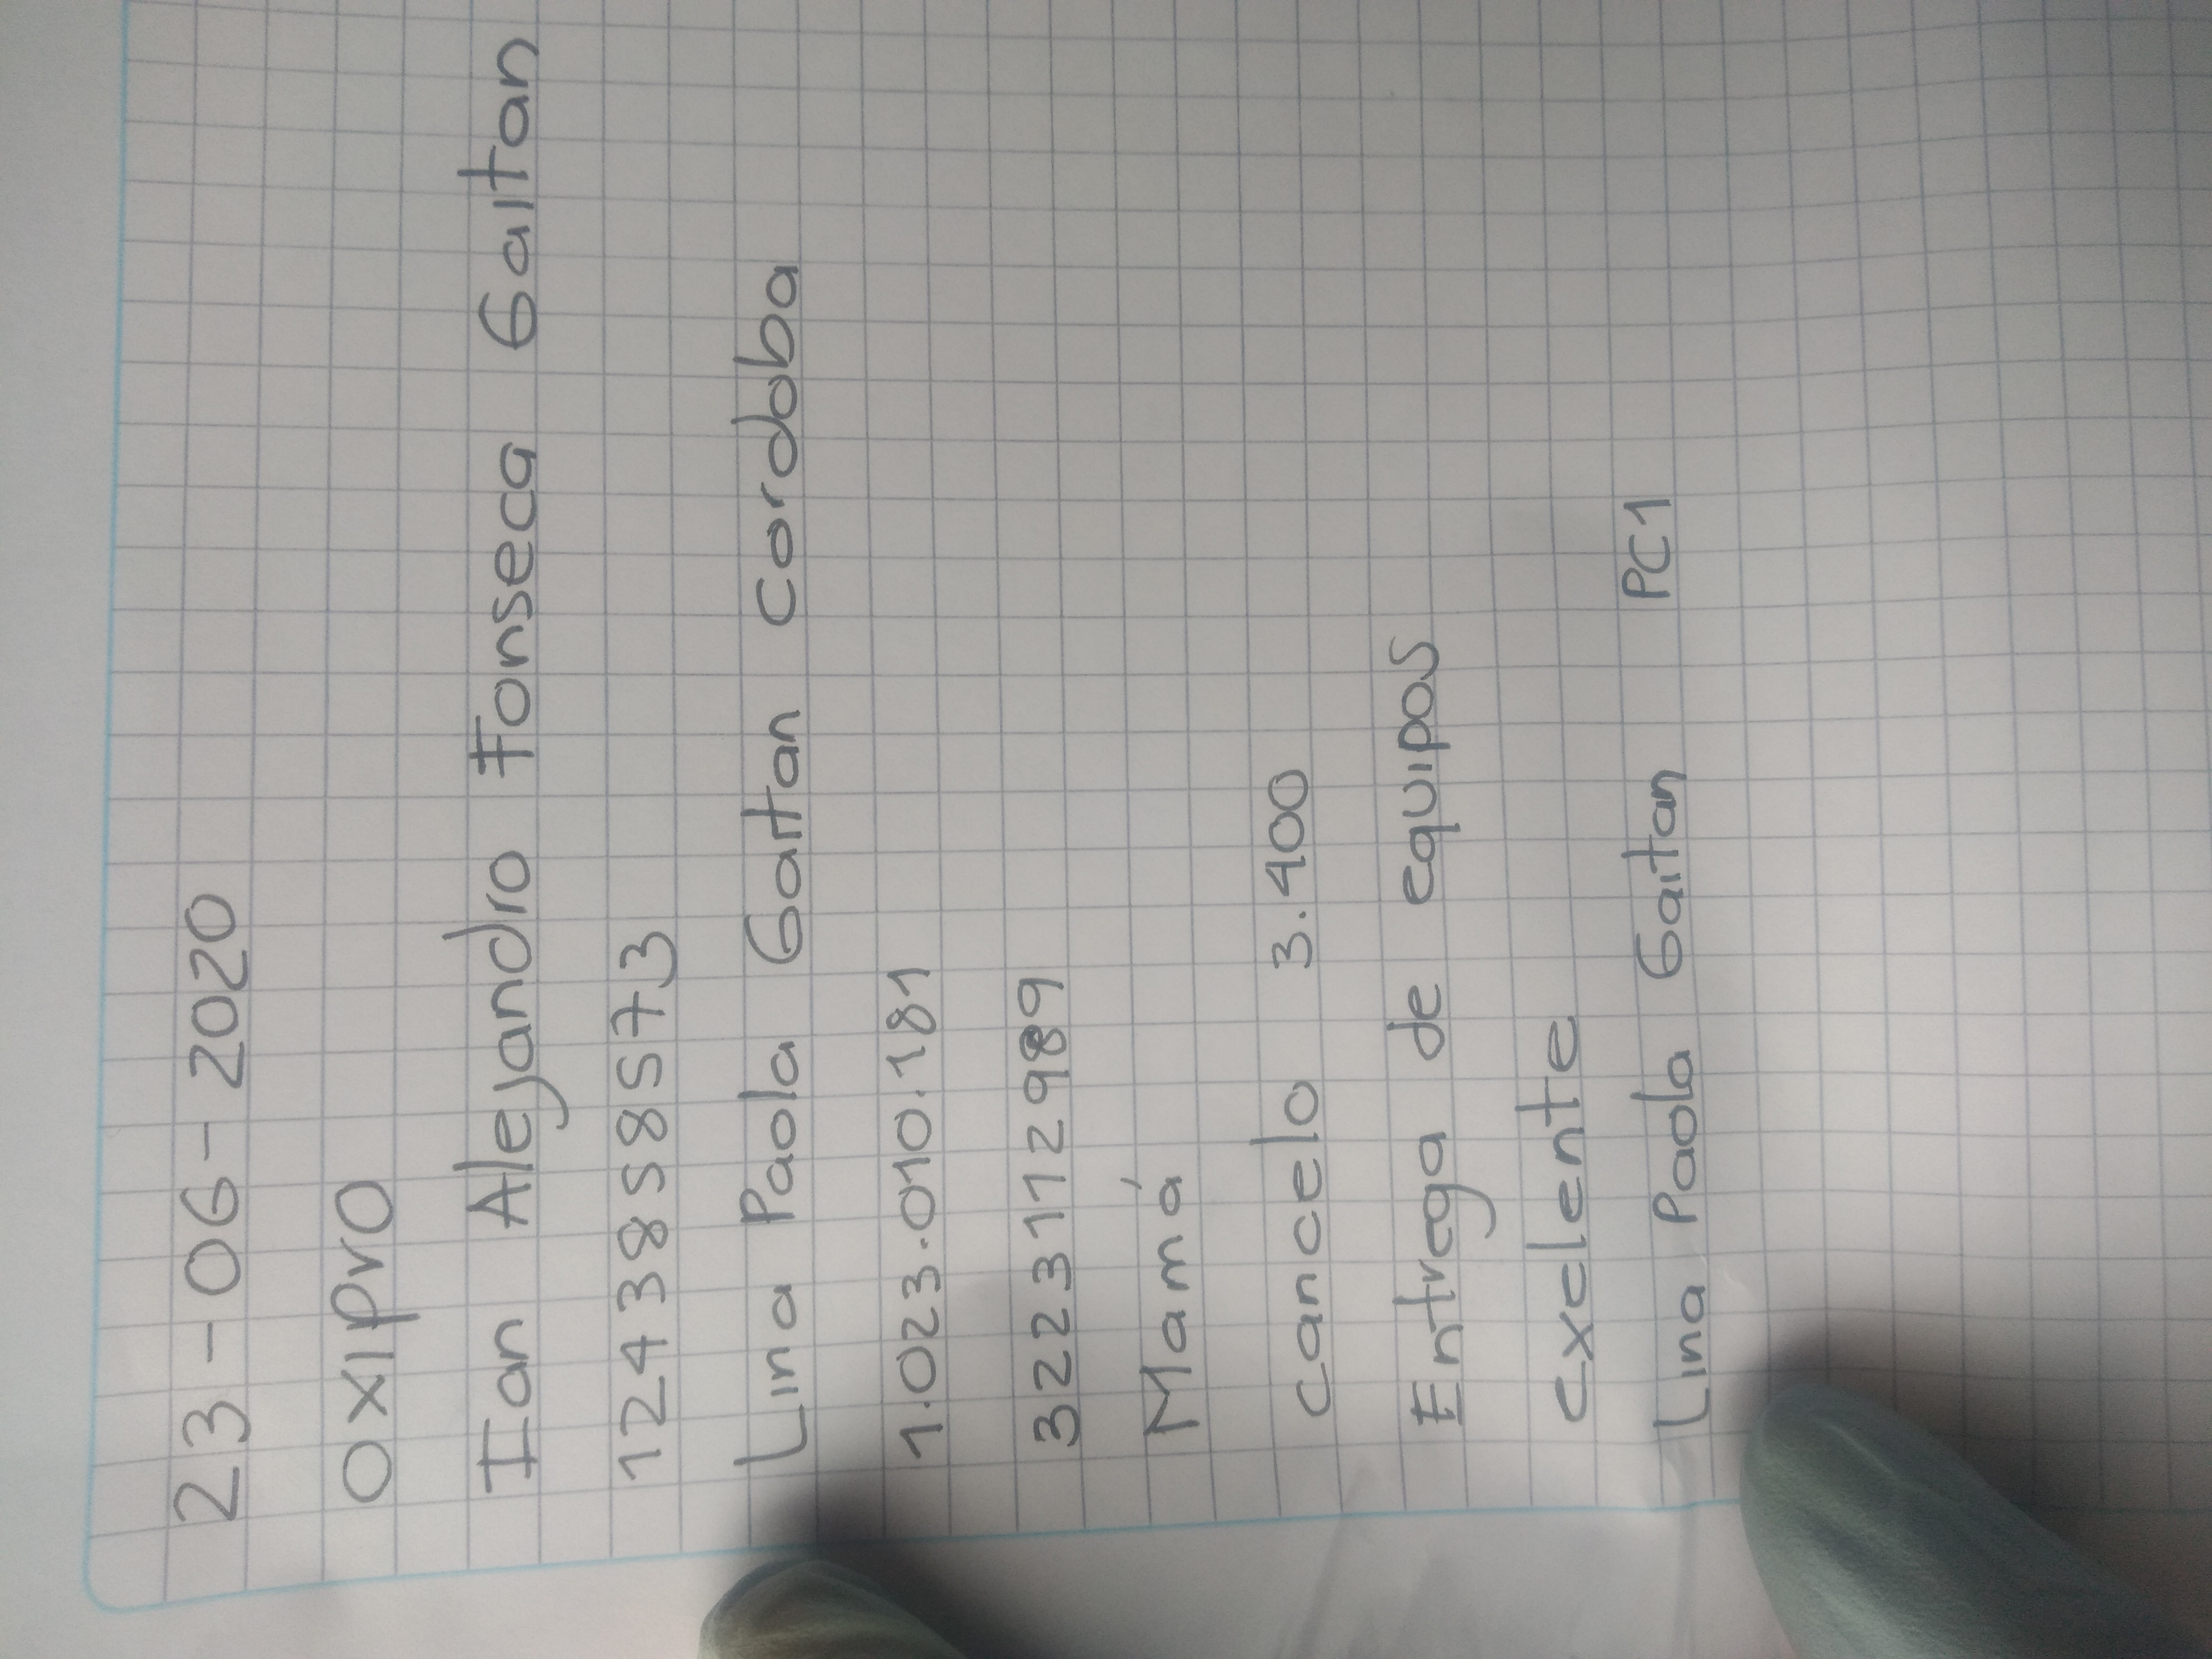 23-06-2020
OXIPrO
Ian Alejandro Fonseca Gaitan
1243858573
Lina Paola Gaitan Cordoba
1.023.010.181
3223112989
Mamá
Cancelo 3.400
Entrega de equipos
exclente
Lina Paola Gaitan PC1